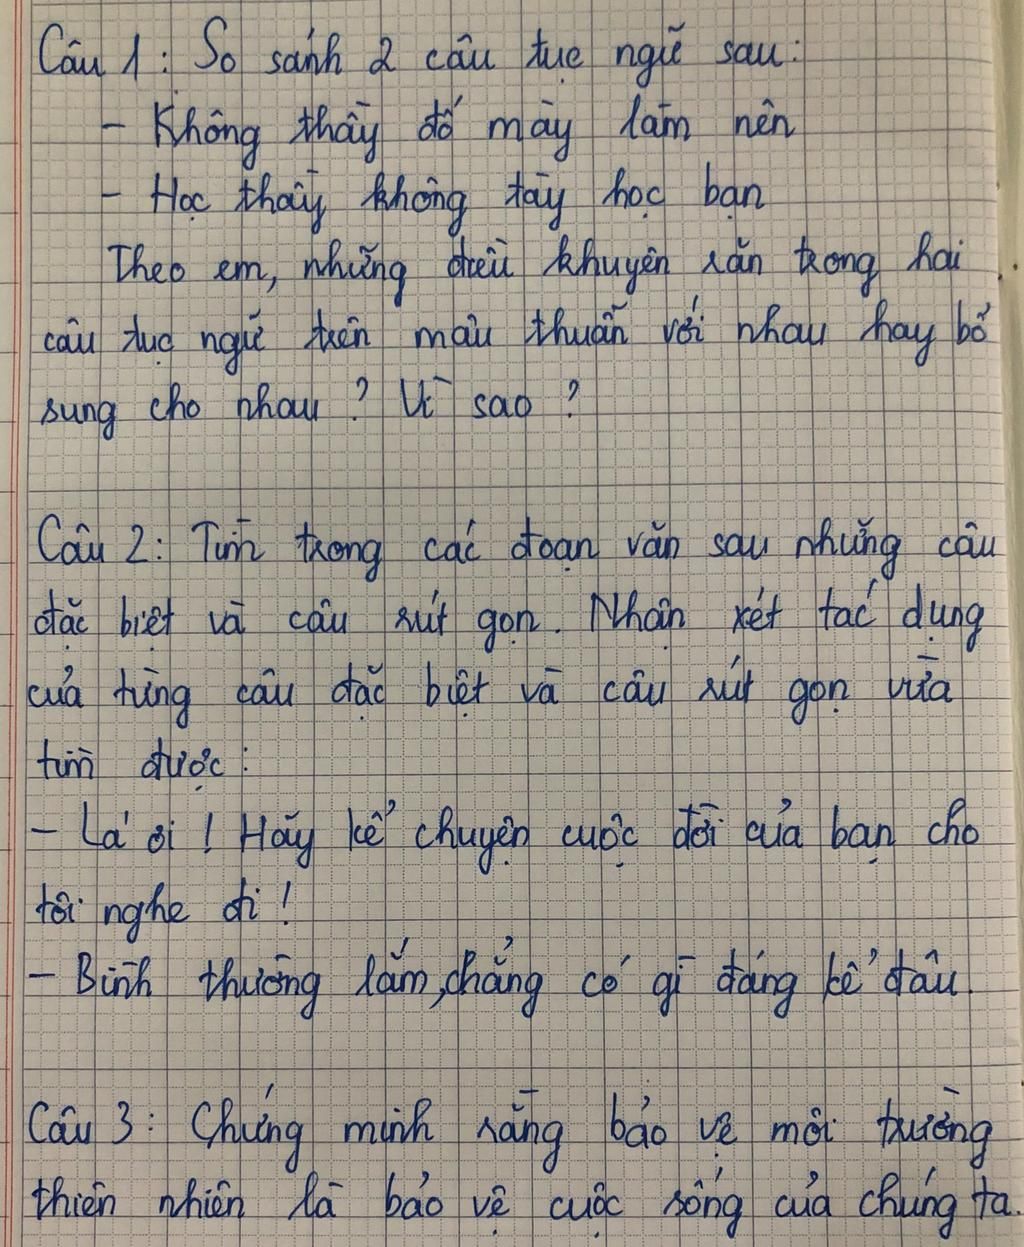 Câu 1: So sánh 2 câu tục ngữ sau:
- Không thầy đố mày làm nên
- Học thầy không tày học bạn
Theo em, những điều khuyên răn trong hai
câu tục ngữ trên mâu thuẫn với nhau hay bổ
sung cho nhau? Vì sao?
Câu 2: Tìm trong các đoạn văn sau những câu
đặc biệt và câu rút gọn. Nhận xét tác dụng
của từng câu đặc biệt và câu rút gọn vừa
tìm được:
- Lá ơi! Hãy kể chuyện cuộc đời của bạn cho
tôi nghe đi!
- Bình thường lắm, chẳng có gì đáng kể đâu.
Câu 3: Chứng minh rằng bảo vệ môi trường
thiên nhiên là bảo vệ cuộc sống của chúng ta.